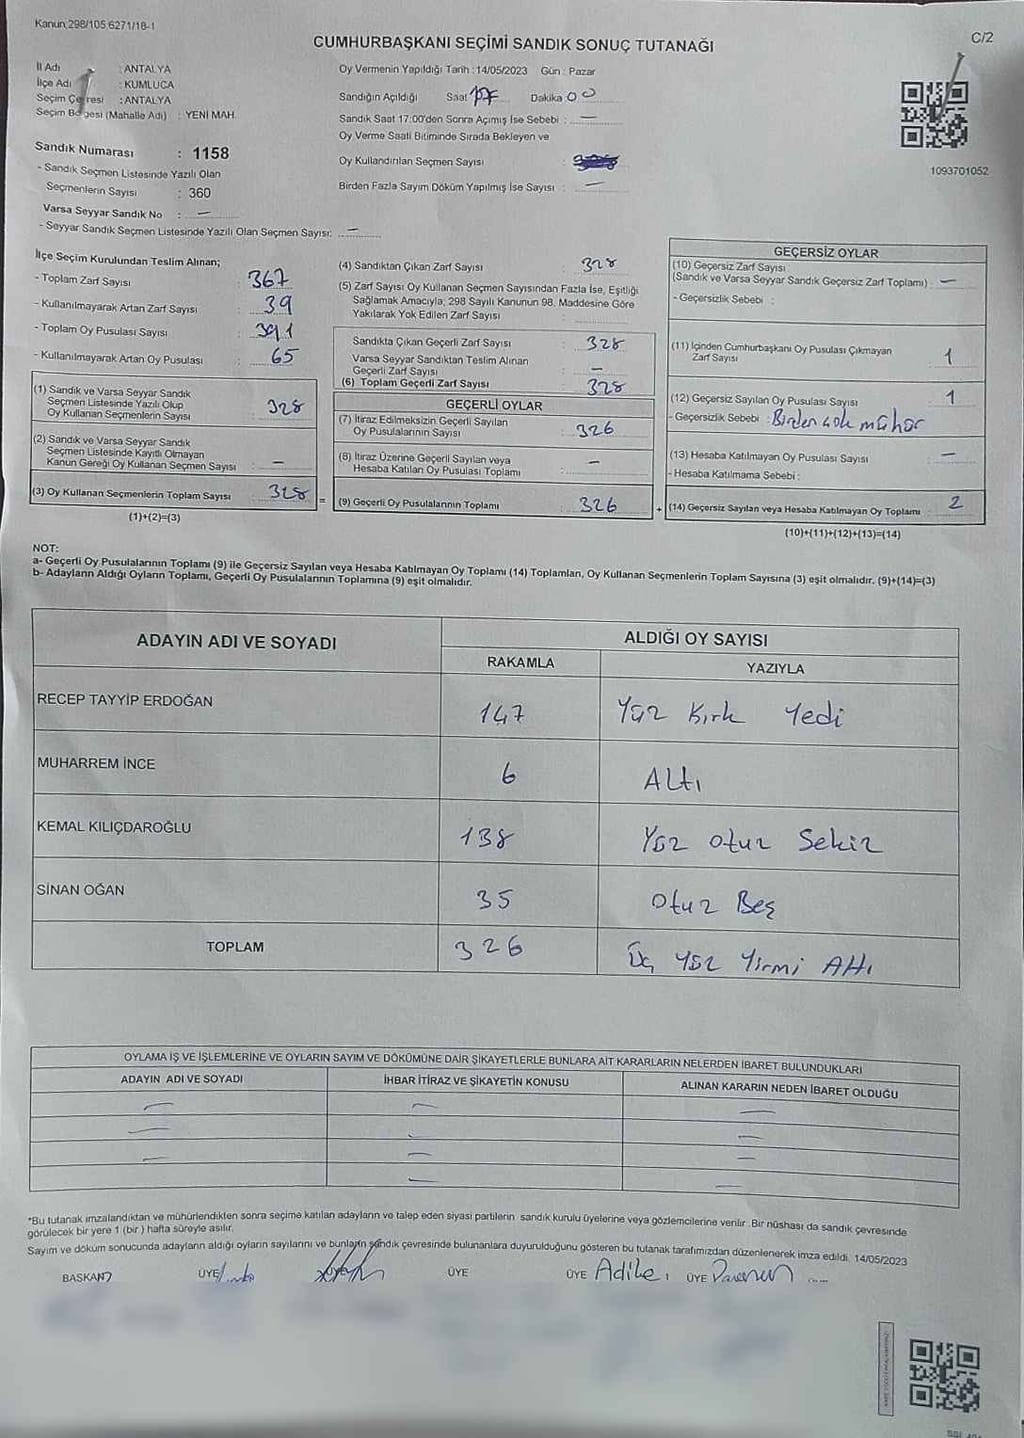 Kanun:298/105,6271/18-1
CUMHURBAŞKANI SEÇİMİ SANDIK SONUÇ TUTANAĞI
C/2
İl Adı : ANTALYA
İlçe Adı : KUMLUCA
Seçim Çevresi : ANTALYA
Seçim Bölgesi (Mahalle Adı) : YENİ MAH.
Oy Vermenin Yapıldığı Tarih : 14/05/2023 Gün : Pazar
Sandığın Açıldığı Saat 17 Dakika 00
Sandık Saat 17:00'den Sonra Açımış İse Sebebi : —
Oy Verme Saati Bitiminde Sırada Bekleyen ve
Oy Kullandırılan Seçmen Sayısı :
Birden Fazla Sayım Döküm Yapılmış İse Sayısı : —
1093701052
Sandık Numarası : 1158
- Sandık Seçmen Listesinde Yazılı Olan
Seçmenlerin Sayısı : 360
Varsa Seyyar Sandık No : —
- Seyyar Sandık Seçmen Listesinde Yazılı Olan Seçmen Sayısı: —
İlçe Seçim Kurulundan Teslim Alınan;
- Toplam Zarf Sayısı : 367
- Kullanılmayarak Artan Zarf Sayısı : 39
- Toplam Oy Pusulası Sayısı : 391
- Kullanılmayarak Artan Oy Pusulası : 65
(1) Sandık ve Varsa Seyyar Sandık
Seçmen Listesinde Yazılı Olup
Oy Kullanan Seçmenlerin Sayısı : 328
(2) Sandık ve Varsa Seyyar Sandık
Seçmen Listesinde Kayıtlı Olmayan
Kanun Gereği Oy Kullanan Seçmen Sayısı : —
(3) Oy Kullanan Seçmenlerin Toplam Sayısı : 328 =
(1)+(2)=(3)
(4) Sandıktan Çıkan Zarf Sayısı : 328
(5) Zarf Sayısı Oy Kullanan Seçmen Sayısından Fazla İse, Eşitliği
Sağlamak Amacıyla, 298 Sayılı Kanunun 98. Maddesine Göre
Yakılarak Yok Edilen Zarf Sayısı :
Sandıkta Çıkan Geçerli Zarf Sayısı : 328
Varsa Seyyar Sandıktan Teslim Alınan
Geçerli Zarf Sayısı : —
(6) Toplam Geçerli Zarf Sayısı : 328
GEÇERLİ OYLAR
(7) İtiraz Edilmeksizin Geçerli Sayılan
Oy Pusulalarının Sayısı : 326
(8) İtiraz Üzerine Geçerli Sayılan veya
Hesaba Katılan Oy Pusulası Toplamı : —
(9) Geçerli Oy Pusulalarının Toplamı : 326 +
GEÇERSİZ OYLAR
(10) Geçersiz Zarf Sayısı
(Sandık ve Varsa Seyyar Sandık Geçersiz Zarf Toplamı) : —
- Geçersizlik Sebebi :
(11) İçinden Cumhurbaşkanı Oy Pusulası Çıkmayan
Zarf Sayısı : 1
(12) Geçersiz Sayılan Oy Pusulası Sayısı : 1
- Geçersizlik Sebebi : Birden çok mühür
(13) Hesaba Katılmayan Oy Pusulası Sayısı : —
- Hesaba Katılmama Sebebi :
(14) Geçersiz Sayılan veya Hesaba Katılmayan Oy Toplamı : 2
(10)+(11)+(12)+(13)=(14)
NOT:
a- Geçerli Oy Pusulalarının Toplamı (9) ile Geçersiz Sayılan veya Hesaba Katılmayan Oy Toplamı (14) Toplamları, Oy Kullanan Seçmenlerin Toplam Sayısına (3) eşit olmalıdır. (9)+(14)=(3)
b- Adayların Aldığı Oyların Toplamı, Geçerli Oy Pusulalarının Toplamına (9) eşit olmalıdır.
ADAYIN ADI VE SOYADI
ALDIĞI OY SAYISI
RAKAMLA YAZIYLA
RECEP TAYYİP ERDOĞAN 147 Yüz Kırk Yedi
MUHARREM İNCE 6 Altı
KEMAL KILIÇDAROĞLU 138 Yüz Otuz Sekiz
SİNAN OĞAN 35 Otuz Beş
TOPLAM 326 Üç Yüz Yirmi Altı
OYLAMA İŞ VE İŞLEMLERİNE VE OYLARIN SAYIM VE DÖKÜMÜNE DAİR ŞİKAYETLERLE BUNLARA AİT KARARLARIN NELERDEN İBARET BULUNDUKLARI
ADAYIN ADI VE SOYADI İHBAR İTİRAZ VE ŞİKAYETİN KONUSU ALINAN KARARIN NEDEN İBARET OLDUĞU
— — —
— — —
— — —
— —
*Bu tutanak imzalandıktan ve mühürlendikten sonra seçime katılan adayların ve talep eden siyasi partilerin sandık kurulu üyelerine veya gözlemcilerine verilir. Bir nüshası da sandık çevresinde
görülecek bir yere 1 (bir ) hafta süreyle asılır.
Sayım ve döküm sonucunda adayların aldığı oyların sayılarını ve bunların sandık çevresinde bulunanlara duyurulduğunu gösteren bu tutanak tarafımızdan düzenlenerek imza edildi. 14/05/2023
BAŞKAN ÜYE ÜYE ÜYE ÜYE Adile ÜYE